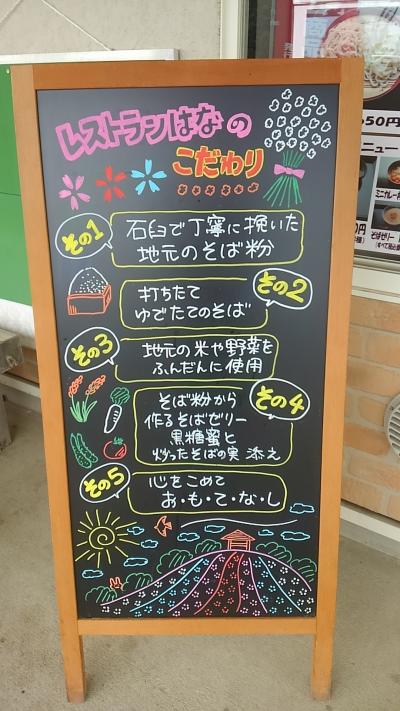 レストランはなの
こだわり
その1
石臼で丁寧に挽いた
地元のそば粉
その2
打ちたて
ゆでたてのそば
その3
地元の米や野菜を
ふんだんに使用
その4
そば粉から
作るそばゼリー
黒糖蜜と
炒ったそばの実 添え
その5
心をこめて
お・も・て・な・し
50円
ニュー
ミニカレー
そばゼリー